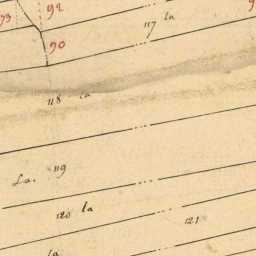 92
93
117 la
90
118 la
119
La.
120 la
121
la